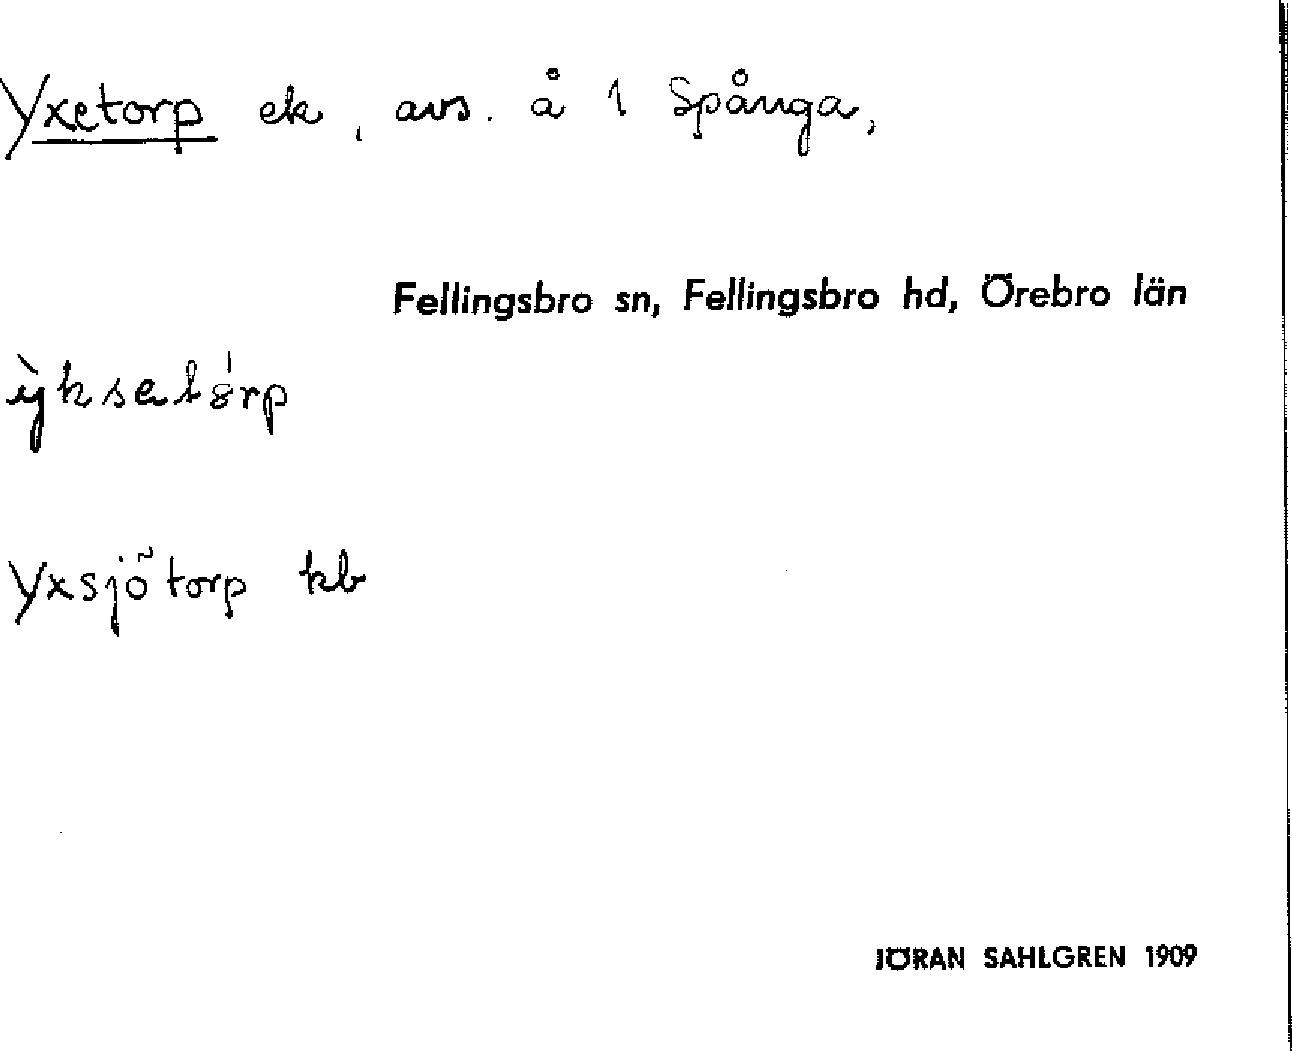 Yxetorp ek, avs. å 1 Spånga,
Fellingsbro sn, Fellingsbro hd, Örebro län
Yxsjötorp kb
JÖRAN SAHLGREN 1909